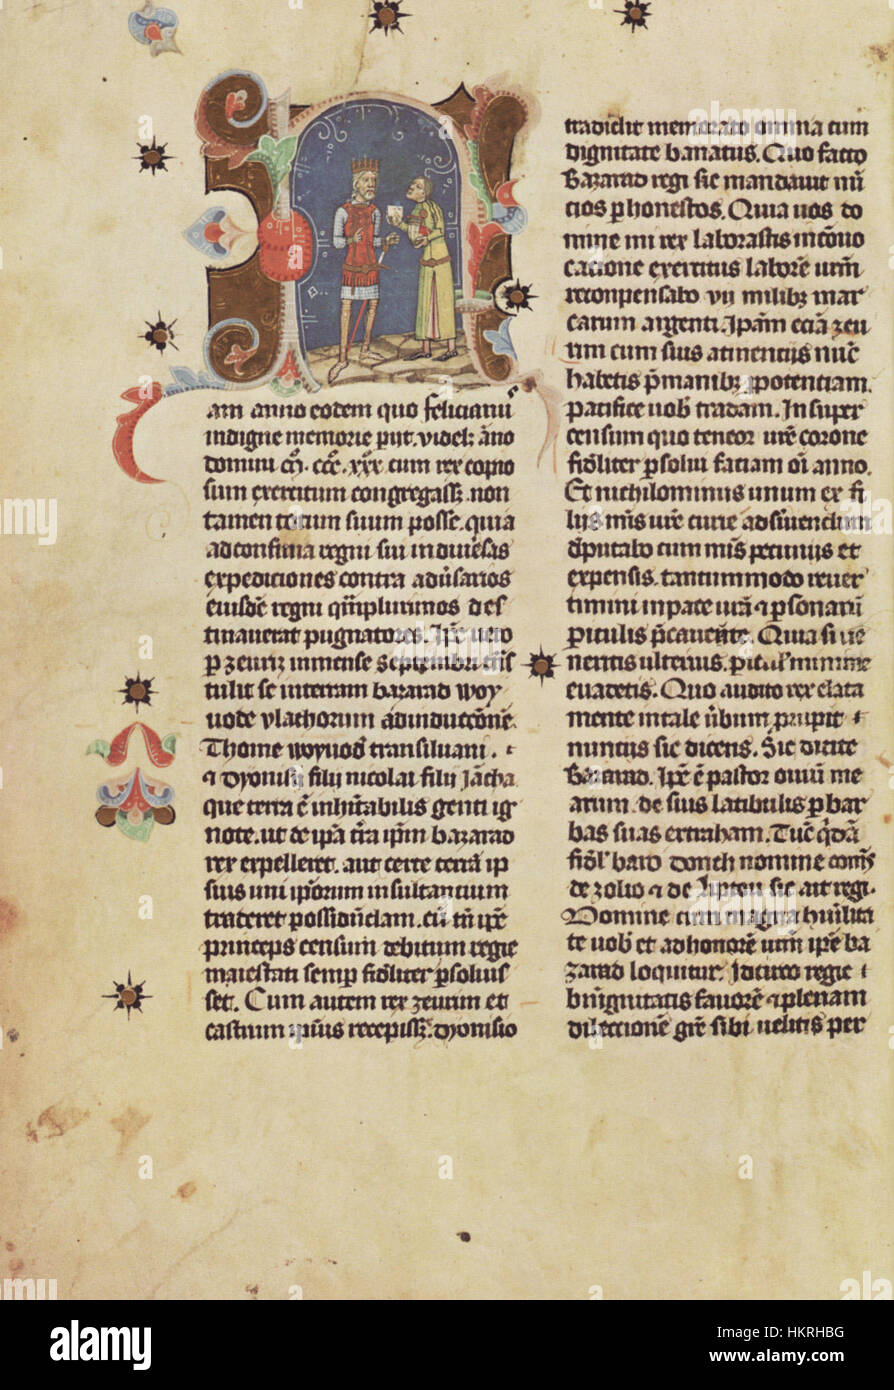 iam anno eodem quo felicianus
indigne memorie perut. videlz año
domini m̊. ccc̊. xxx̊. cum rex copio
sum exercitum congregassz. non
tamen totum suum posse. quia
ad confinia regni sui in diuersas
expediciones contra adũsarios
eiusdē regni q̃mplurimos des
tinauerat pugnatores. Ip̃e uero
per zeuriz in mense Septembri ĩns
tulit se in terram bazarad woy
uode vlachorum ad inductõnē
Thome woyuod transiluani.
⁊ dyonisij filij nicolai filij Iãcha
que terra ē inhĩtabilis genti ig
note. ut de ip̃a tr̃a ip̃m bazarad
rex expelleret. aut certe terrã ip
sius uni ip̃orum insultancium
traderet possidẽdam. cũ tñ ip̃e
princeps censum debitum regie
maiestati semp̱ fidel̃iter persoluis
set. Cum autem rex zeurim et
castrum ip̃ius recepissz. dyonisio
tradidit memorato omnia cum
dignitate banatus. Quo facto
Bazarad regi sic mandauit nũ
cios per honestos. Quia uos do
mine mi rex laborastis in cõuo
cacione exercitus laborē ur̃m
reconpensabo vij milibz mar
carum argenti. Ip̃am eciã zeu
rim cum suis atinentijs nũc
habetis p̃ manibz ꝓpotentiam.
pacifice uob̃ tradam. In super
censum quo teneor ur̃e corone
fidel̃iter persolui faciam oĩ anno.
Et nichilominus unum ex fi
lijs meis ur̃e curie ad s̃uiendum
deputabo cum meis pecunijs et
expensis. tantummodo reuer
timini in pace ur̃a ⁊ personarũ
periculis p̃cauente. Quia si ue
neritis ulterius. pericul̃ minime
euadetis. Quo audito rex elata
mente in tale ũbum prupit
nuncijs sic dicens. Sic dicite
Bazarad. Ip̃e ē pastor ouium me
arum. de suis latibulis per bar
bas suas extraham. Tũc q̃dã
fidel̃ baro donch nomine comes
de zolio ⁊ de lipteu sic ait regi.
Domine cum magna humilita
te uob̃ et ad honorē ur̃m ip̃e ba
zarad loquitur. Idcirco regie
benignitatis fauorē ⁊ plenam
dileccionē gr̃e sibi uelitis per
alamy
a
alamy
Image ID: HKRHBG
www.alamy.com